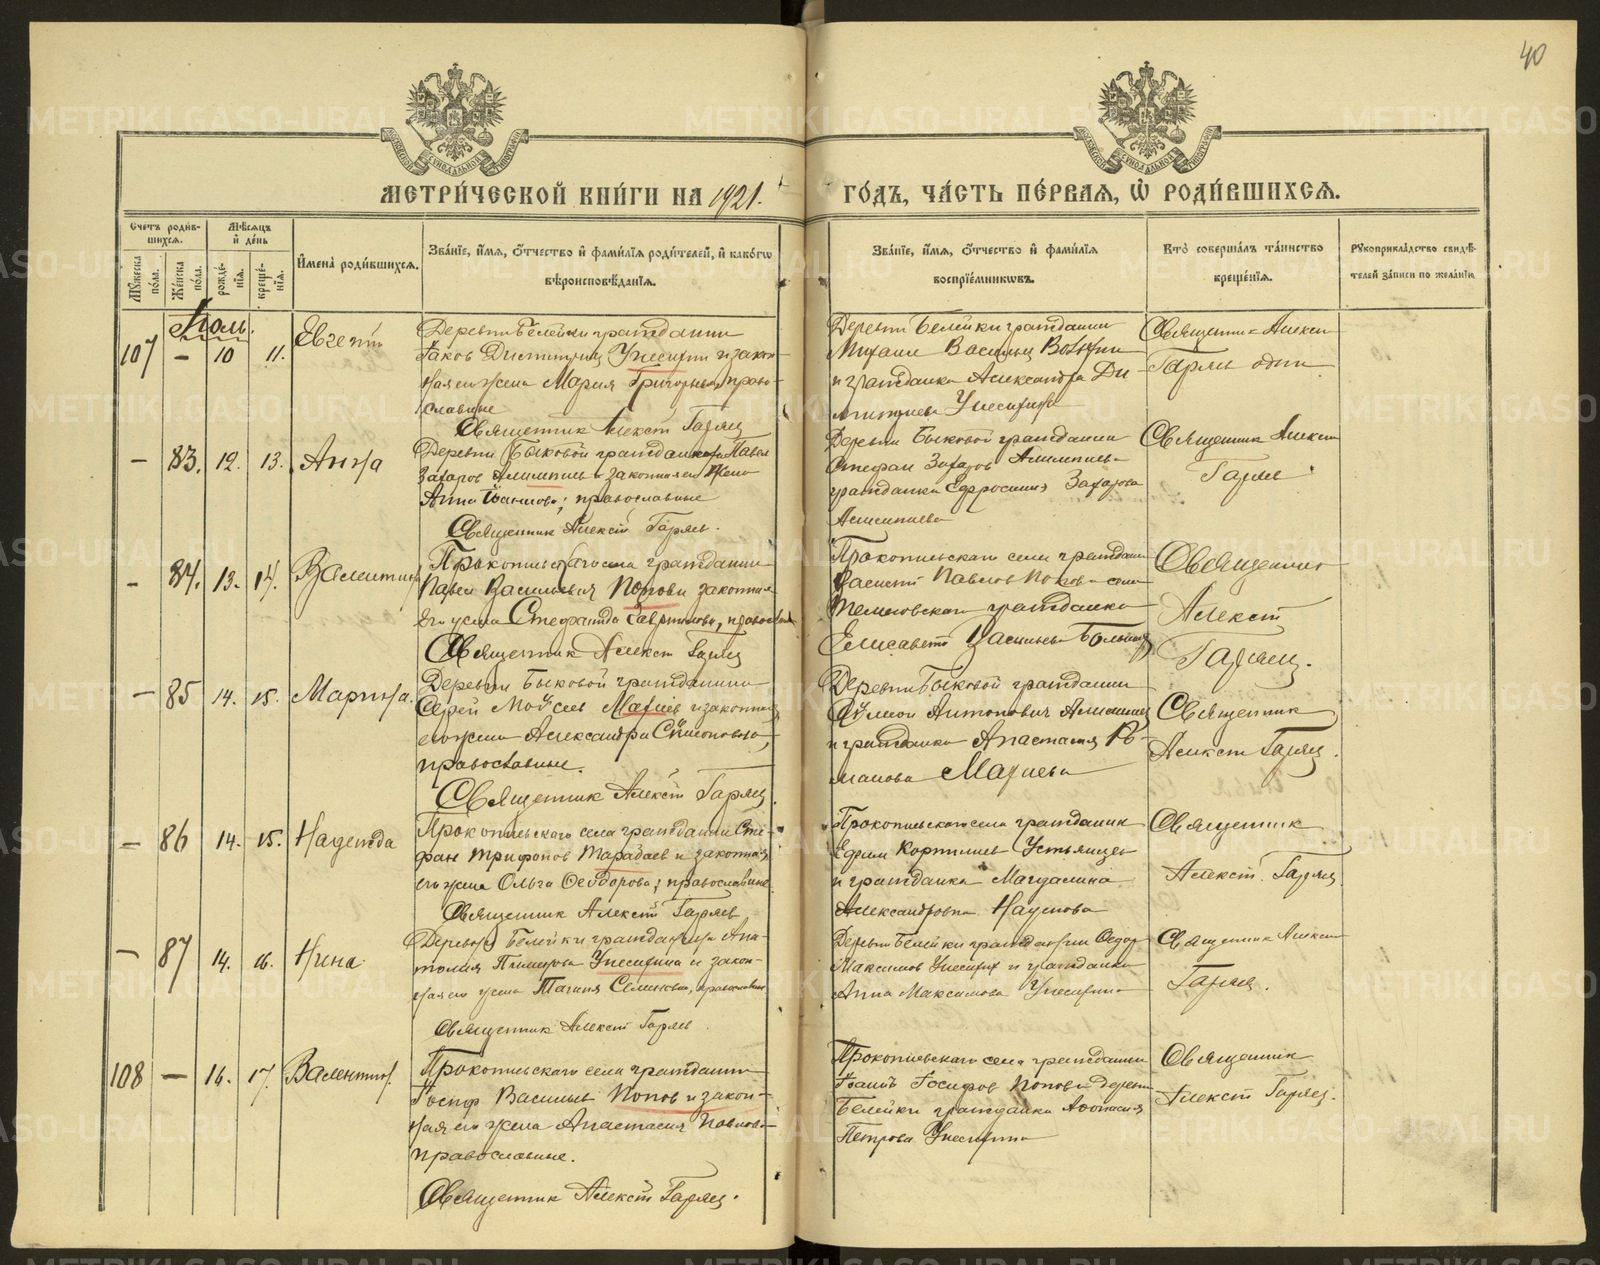 40
МЕТРИ́ЧЕСКОЙ КНИ́ГИ НА 1921. ГО́ДЪ, ЧА́СТЬ ПЕ́РВАЯ, Ѡ҆ РОДИ́ВШИХСЯ.
Счетъ роди́вшихся.
Му́жеска по́ла.
Же́нска по́ла.
Мѣ́сяцъ и҆ де́нь
рожде́нїя.
креще́нїя.
И҆мена̀ роди́вшихся.
Зва́нїе, и҆́мя, ѻ҆́тчество и҆ фами́лїя роди́телей, и҆ како́гѡ
вѣроисповѣ́данїя.
Зва́нїе, и҆́мя, ѻ҆́тчество и҆ фами́лїя
воспрїе́мникѡвъ.
Кто̀ соверша́лъ та́инство
креще́нїя.
Рꙋкоприкла́дство свидѣ́-
телей за́писи по жела́нїю
107 — 10 11. Евгений
Деревни Белейки гражданин
Иаков Димитриев и закон-
ная его жена Мария Григорьева, право-
славные
Священник Алексей Гаряев
Деревни Белейки гражданин
Михаил Васильев
и гражданка Александра Ди-
митриева
Священник Алексей
Гаряев один
— 83. 12. 13. Анна
Деревни Быковой гражданин Павел
Захаров и законная жена
Анна; православные
Священник Алексей Гаряев.
Деревни Быковой гражданин
Стефан Захаров
гражданка Евфросиния Захарова
Священник Алексей
Гаряев
— 84. 13. 14. Валентина
Прокопьевского села гражданин
Павел Васильевич Попов и законная
его жена Стефанида Гавриилова, православные
Священник Алексей Гаряев
Прокопьевского села гражданин
Василий Павлов Попов и села
гражданка
Елисавета Васильева
Священник
Алексей
Гаряев.
— 85 14. 15. Марина.
Деревни Быковой гражданин
Сергей Мойсеев и законная
его жена Александра Симеоновна,
православные.
Священник Алексей Гаряев.
Деревни Быковой гражданин
Симеон Антонович
и гражданка Анастасия Ро-
манова
Священник
Алексей Гаряев.
— 86 14. 15. Надежда
Прокопьевского села гражданин Сте-
фан Трифонов Тарабаев и законная
его жена Ольга Феодорова; православные
Священник Алексей Гаряев
Прокопьевского села гражданин
Ефим Корнилиев Устьянцев
и гражданка Магдалина
Александровна Наумова
Священник
Алексей Гаряев
— 87 14. 16. Нина
Деревни Белейки гражданина Ана-
толия и закон-
ная его жена Семенова, православные
Священник Алексей Гаряев.
Деревни Белейки гражданин Феодор
Максимов и гражданка
Анна Максимова
Священник Алексей
Гаряев.
108 — 16. 17. Валентин.
Прокопьевского села гражданин
Иосиф Васильев Попов и закон-
ная его жена Анастасия Павлова
православные.
Священник Алексей Гаряев.
Прокопьевского села гражданин
Иоанн Иосифов Попов и деревни
Белейки гражданка Афонасия
Петрова
Священник
Алексей Гаряев.
METRIKI.GASO-URAL.RU